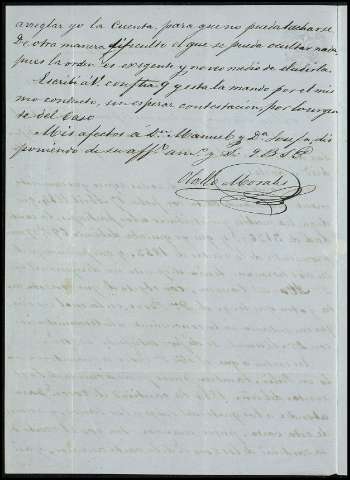 arreglar yo la Cuenta para que no pueda tacharse.
De otra manera dificulto el que se pueda ocultar nada
pues la orden es exigente y no veo medio de eludirla.
Escribí á V. con fha 9 y esta la mando por el mis
mo conducto, sin esperar contestacion, por lo urgen
te del caso
Mis afectos a Dn. Manuel y Da. Josefa, dis
poniendo de su affo. am.o y S. Q B S M.
Morales